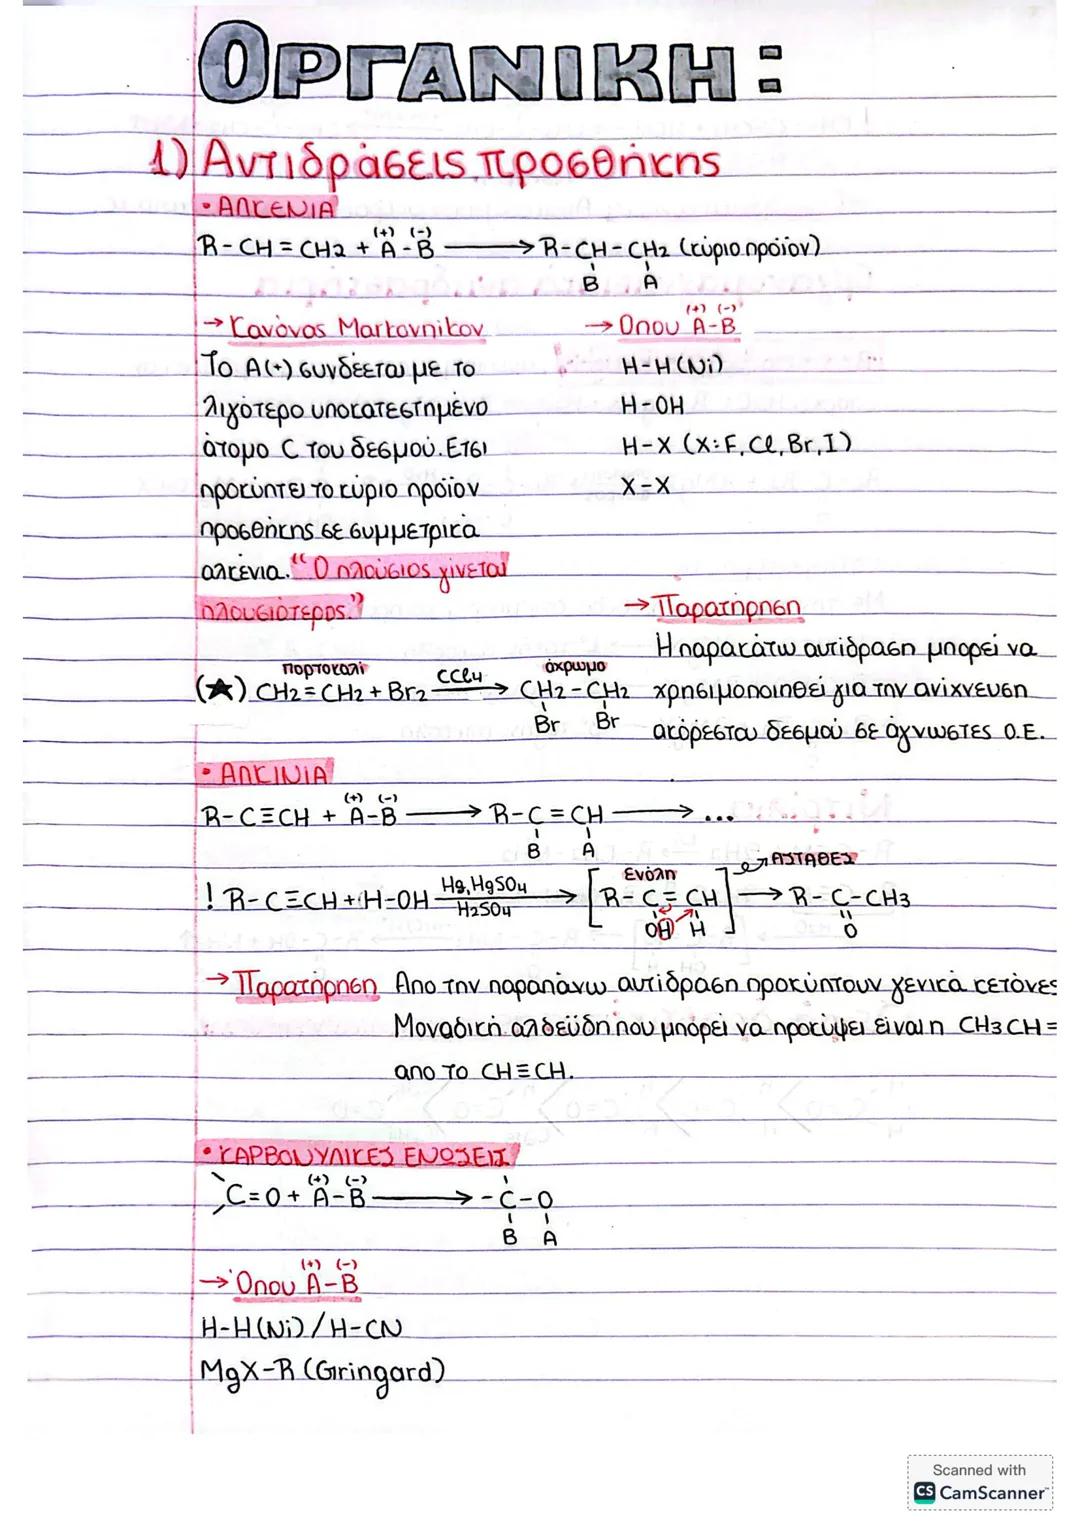 ΟΡΓΑΝΙΚΗ:
1) Αντιδράσεις προσθήκης
• ΑΛΚΕΝΙΑ
R-CH=CH2 + A(+)-B(-) ⟶ R-CH-CH2 (κύριο προϊόν)
B A
→ Κανόνας Markovnikov
Το Α(+) συνδέεται με το
λιγότερο υποκατεστημένο
άτομο C του δεσμού. Ετσι
προκύπτει το κύριο προϊόν
προσθήκης σε συμμετρικά
αλκένια. "Ο πλούσιος γίνεται
πλουσιότερος."
→ Οπου A(+)-B(-)
H-H(Ni)
H-OH
H-X (X:F,Cl,Br,I)
X-X
→ Παρατήρηση
Η παρακάτω αντίδραση μπορεί να
χρησιμοποιηθεί για την ανίχνευση
ακόρεστου δεσμού σε άγνωστες Ο.Ε.
πορτοκαλί άχρωμο
(★) CH2=CH2 + Br2 CCl4⟶ CH2-CH2
Br Br
• ΑΛΚΙΝΙΑ
R-C≡CH + A(+)-B(-) ⟶ R-C=CH ⟶ ...
B A
Ενόλη ΑΣΤΑΘΕΣ
! R-C≡CH+H-OH Hg,HgSO4 / H2SO4 ⟶ [R-C=CH] ⟶ R-C-CH3
OH H O
→ Παρατήρηση Απο την παραπάνω αντίδραση προκύπτουν γενικά κετόνες
Μοναδική αλδεϋδη που μπορεί να προκύψει είναι η CH3CH=
απο το CH≡CH.
• ΚΑΡΒΟΝΥΛΙΚΕΣ ΕΝΩΣΕΙΣ
C=O + A(+)-B(-) ⟶ -C-O
B A
→ Όπου A(+)-B(-)
H-H(Ni) / H-CN
MgX-R (Gringard)
Scanned with
CS CamScanner